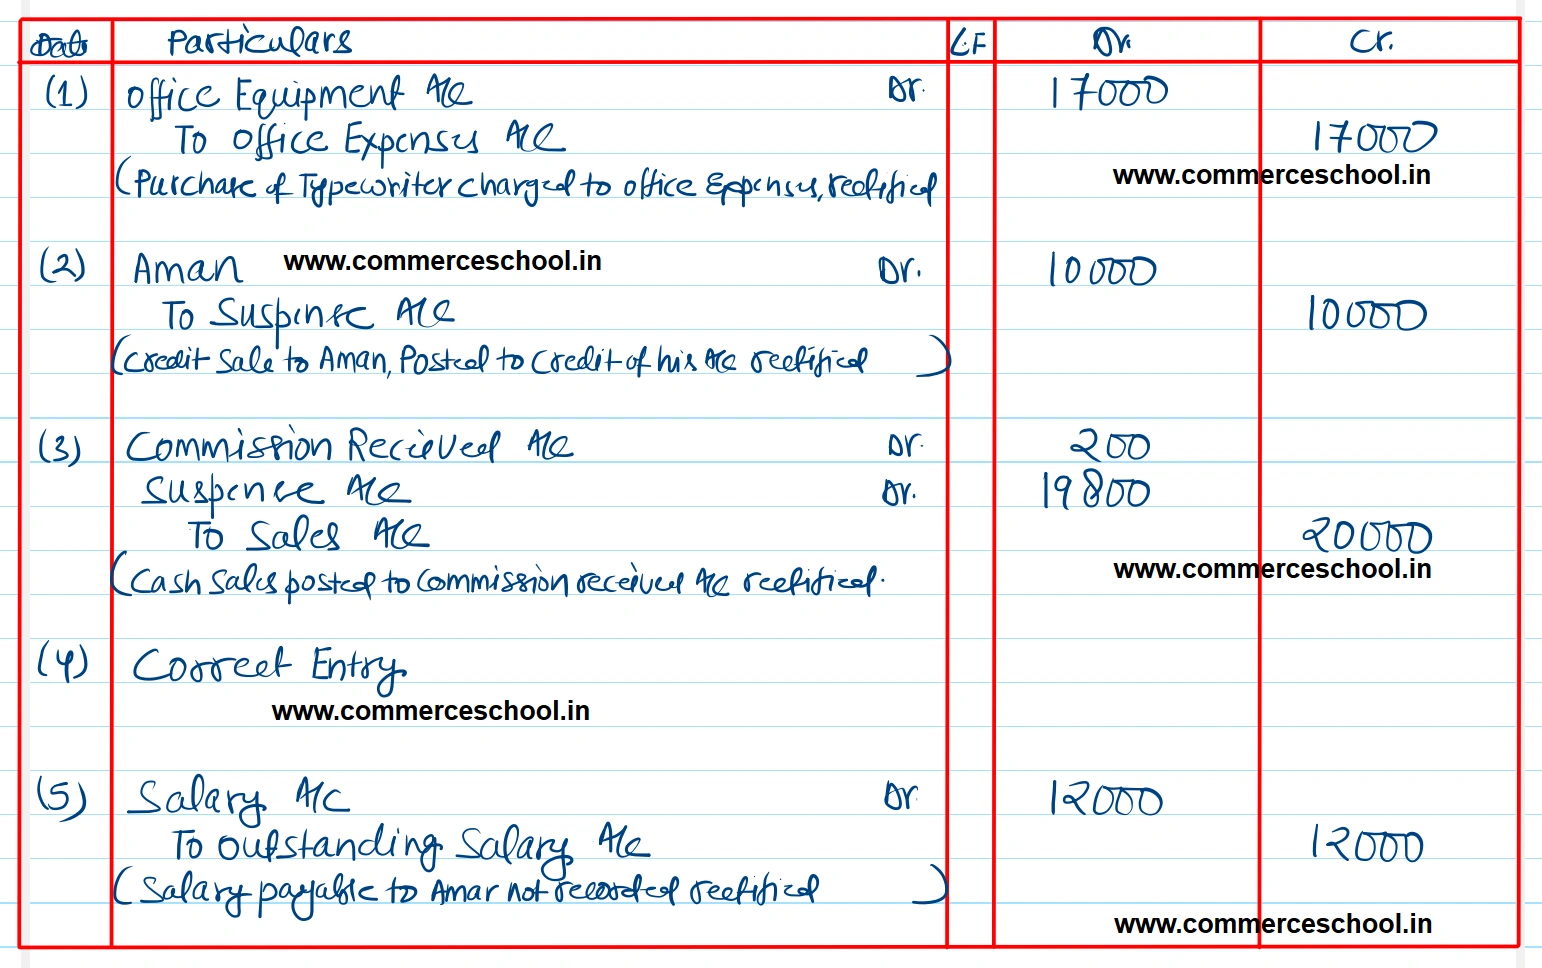 Date Particulars L.F Dr. Cr.
(1) Office Equipment A/c Dr. 17000
To Office Expenses A/c 17000
www.commerceschool.in
(Purchase of Typewriter charged to office Expenses, rectified
(2) Aman www.commerceschool.in Dr. 10000
To Suspense A/c 10000
(Credit Sale to Aman, Posted to Credit of his A/c rectified )
(3) Commission Recieved A/c Dr. 200
Suspense A/c Dr. 19800
To Sales A/c 20000
www.commerceschool.in
(Cash Sales posted to Commission received A/c rectified.
(4) Correct Entry
www.commerceschool.in
(5) Salary A/c Dr 12000
To Outstanding Salary A/c 12000
(Salary payable to Amar not recorded rectified )
www.commerceschool.in